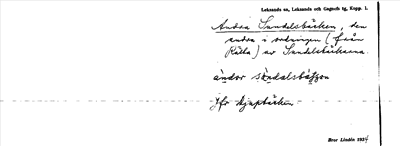 Leksands sn, Leksands och Gagnefs tg, Kopp. l.
Andra Sundelsbäcken, den
andra i ordningen (från
Rälta) av Sundelsbäckarna.
Jfr Djupbäcken.
Bror Lindén 1934